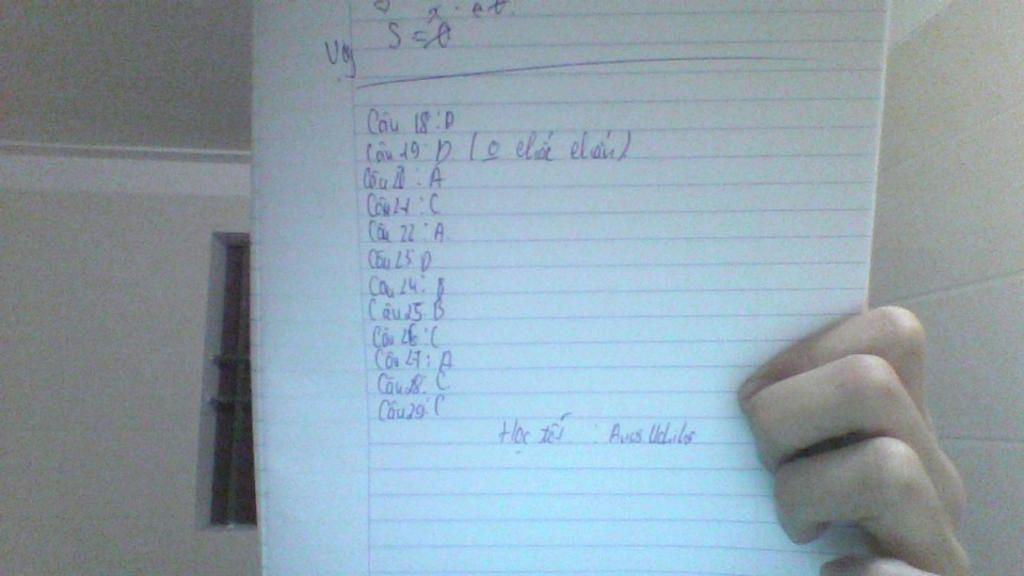 S = Ø
Vậy
Câu 18: D
Câu 19: D (o chắc chắn)
Câu 20: A
Câu 21: C
Câu 22: A
Câu 23: D
Câu 24: B
Câu 25: B
Câu 26: C
Câu 27: A
Câu 28: C
Câu 29: C
Học tốt :